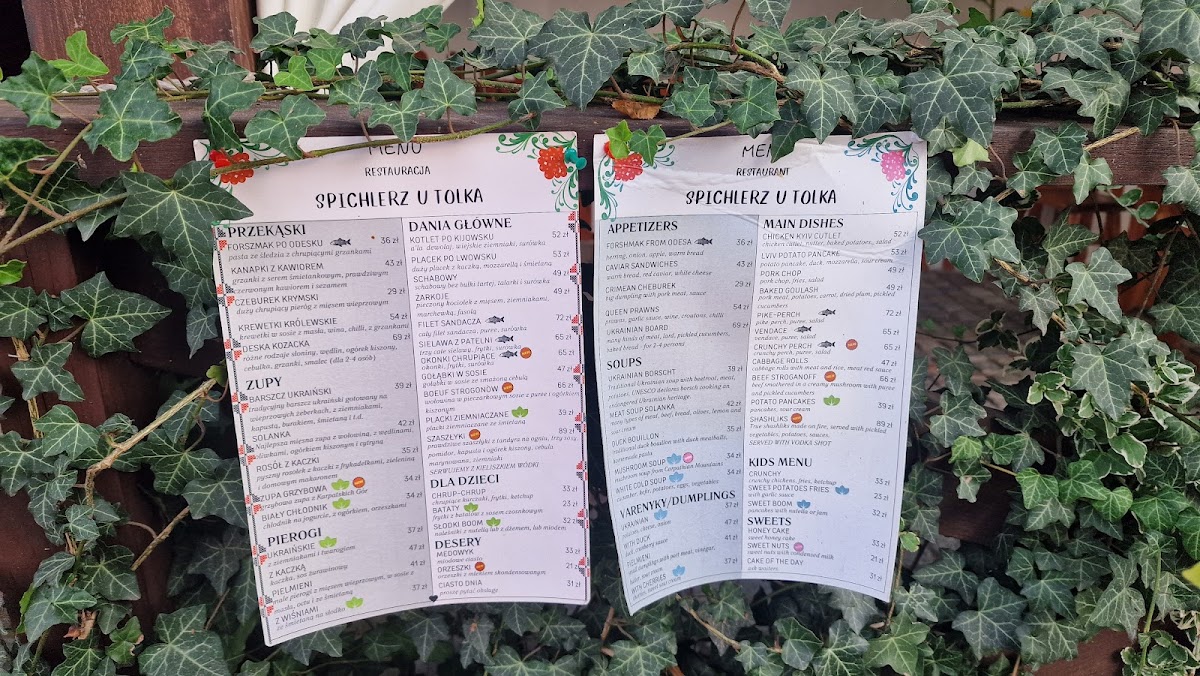 MENU
RESTAURACJA
SPICHLERZ U TOLKA
PRZEKĄSKI
FORSZMAK PO ODESKU 36 zł
pasta ze śledzia z chrupiącymi grzankami
KANAPKI Z KAWIOREM 43 zł
grzanki z serem śmietankowym, prawdziwym
czerwonym kawiorem i sezamem
CZEBUREK KRYMSKI 29 zł
duży chrupiący pieróg z mięsem wieprzowym
KREWETKI KRÓLEWSKIE 54 zł
krewetki w sosie z masła, wina, chilli, z grzankami
DESKA KOZACKA 69 zł
różne rodzaje słoniny, wędlin, ogórek kiszony,
cebulka, grzanki, smalec (dla 2-4 osób)
ZUPY
BARSZCZ UKRAIŃSKI 39 zł
tradycyjny barszcz ukraiński gotowany na
wieprzowych żeberkach, z ziemniakami,
kapustą, burakiem, śmietaną i t.d.
SOLANKA 42 zł
Najlepsza mięsna zupa z wołowiną, z wędlinami,
oliwkami, ogórkiem kiszonym i cytryną
ROSÓŁ Z KACZKI 35 zł
pyszny rosół z kaczki z frykadelkami, zieleniną
i domowym makaronem
ZUPA GRZYBOWA 34 zł
grzybowa zupa z Karpatskich Gor
BIAŁY CHŁODNIK 34 zł
chłodnik na jogurcie, z ogórkiem, orzeszkami
PIEROGI
UKRAIŃSKIE 37 zł
z ziemniakami i twarogiem
Z KACZKĄ 47 zł
kaczka, sos żurawinowy
PIELMIENI 41 zł
małe pierogi z mięsem wieprzowym, w sosie z
masła, octu i ze śmietaną
Z WIŚNIAMI 37 zł
ze śmietaną na słodko
DANIA GŁÓWNE
KOTLET PO KIJOWSKU 52 zł
a la dewolaj, wiejskie ziemniaki, surówka
PLACEK PO LWOWSKU 53 zł
duży placek z kaczką, mozzarellą i śmietaną
SCHABOWY 49 zł
schabowy bez bułki tartej, talarki i surówka
ZARKOJE 49 zł
pieczony kociołek z mięsem, ziemniakami,
marchewką, fasolą
FILET SANDACZA 72 zł
cały filet sandacza, puree, surówka
SIELAWA Z PATELNI 65 zł
trzy całe sielawy, frytki, surówka
OKONKI CHRUPIĄCE 65 zł
okonki, frytki, surówka
GOŁĄBKI W SOSIE 47 zł
gołąbki w sosie ze smażoną cebulą
BOEUF STROGONÓW 66 zł
wołowina w pieczarkowym sosie z puree i ogórkiem
kiszonym
PLACKI ZIEMNIACZANE 39 zł
placki ziemniaczane ze śmietaną
SZASZŁYKI 89 zł
prawdziwe szaszłyki z tandyra na ogniu, trzy sosy,
pomidor, kapusta i ogórek kiszony, cebula
marynowana, ziemniaki
SERWUJEMY Z KIELISZKIEM WÓDKI
DLA DZIECI
CHRUP-CHRUP 33 zł
chrupiące kurczaki, frytki, ketchup
BATATY 23 zł
frytki z batatów z sosem czosnkowym
SŁODKI BOOM 32 zł
naleśniki z nutellą lub z dżemem, lub miodem
DESERY
MEDOWYK 33 zł
miodowe ciasto
ORZESZKI 21 zł
orzeszki z mlekiem skondensowanym
CIASTO DNIA 31 zł
proszę pytać obsługę
RESTAURANT
SPICHLERZ U TOLKA
APPETIZERS
FORSHMAK FROM ODESA 36 zł
hering, onion, apple, warm bread
CAVIAR SANDWICHES 43 zł
warm bread, red caviar, white cheese
CRIMEAN CHEBUREK 29 zł
big dumpling with pork meat, sauce
QUEEN PRAWNS 54 zł
prawns, garlic sauce, wine, croutons, chilli
UKRAINIAN BOARD 69 zł
many kinds of meat, lard, pickled cucumbers,
salted bread - for 2-4 persons
SOUPS
UKRAINIAN BORSCHT 39 zł
traditional Ukrainian soup with beetroot, meat,
potatoes, UNESCO declares borsch cooking an
endangered Ukrainian heritage.
MEAT SOUP SOLANKA 42 zł
many types of meat, beef, bread, olives, lemon and
sour cream
DUCK BOUILLON 35 zł
traditional duck bouillon with duck meatballs,
homemade pasta
MUSHROOM SOUP 34 zł
mushroom soup from Carpathian Mountains
WHITE COLD SOUP 34 zł
cucumber, kefir, potatoes, eggs, vegetables
VARENYKY/DUMPLINGS
UKRAINIAN 37 zł
potatoes, cheese, onion
WITH DUCK 47 zł
duck, cranberry sauce
PIELMIENI 41 zł
WITH CHERRIES 37 zł
MAIN DISHES
CHICKEN KYIV CUTLET 52 zł
chicken cutlet, butter, baked potatoes, salad
LVIV POTATO PANCAKE 53 zł
potato pancake, duck, mozzarella, sour cream
PORK CHOP 49 zł
pork chop, fries, salad
BAKED GOULASH 49 zł
pork meat, potatoes, carrot, dried plum, pickled
cucumbers
PIKE-PERCH 72 zł
pike perch, puree, salad
VENDACE 65 zł
vendace, puree, salad
CRUNCHY PERCH 65 zł
crunchy perch, puree, salad
CABBAGE ROLLS 47 zł
cabbage rolls with meat and rice, meat red sauce
BEEF STROGANOFF 66 zł
beef smothered in a creamy mushroom with puree
and pickled cucumber
POTATO PANCAKES 39 zł
pancakes, sour cream
SHASHLIKS 89 zł
True shashliks made on fire, served with pickled
vegetables, potatoes, sauces.
SERVED WITH VODKA SHOT
KIDS MENU
CRUNCHY 33 zł
crunchy chickens, fries, ketchup
SWEET POTATOES FRIES 23 zł
with garlic sauce
SWEET BOOM 32 zł
pancakes with nutella or jam
SWEETS
HONEY CAKE 33 zł
sweet honey cake
SWEET NUTS 21 zł
sweet nuts with condensed milk
CAKE OF THE DAY 31 zł
ask waiters